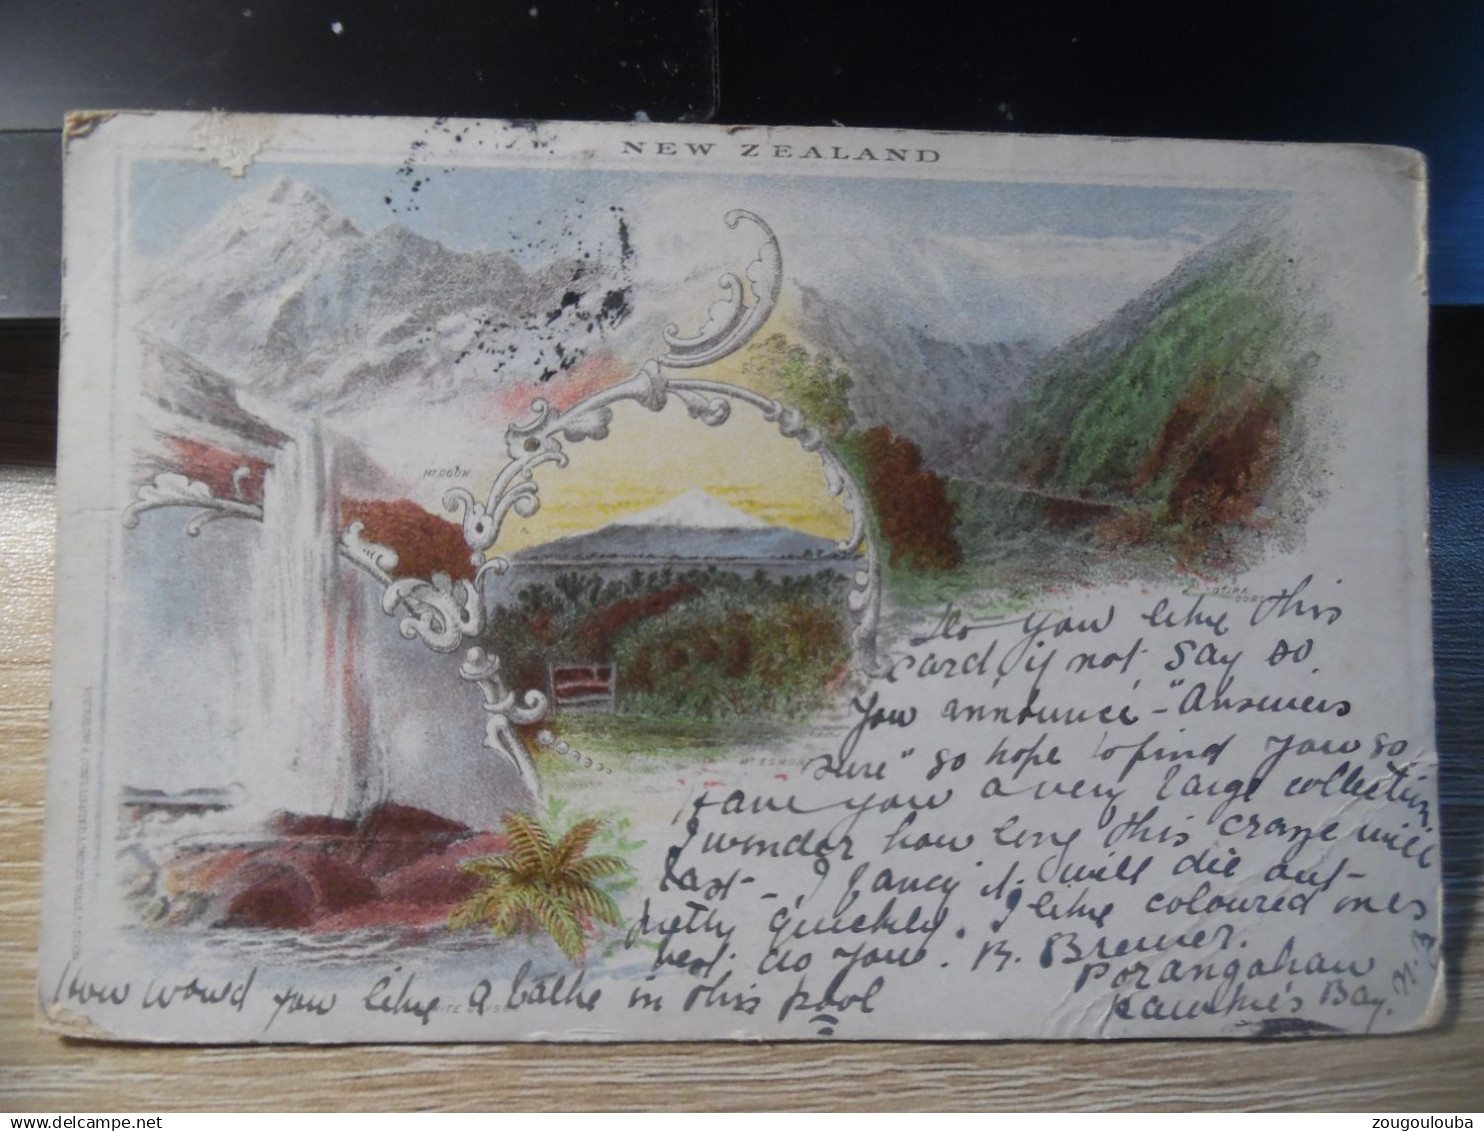 NEW ZEALAND
Mt COOK
OTIRA GORGE
Mt EGMONT
Do you like this
card, if not say so.
You announce - "Answers
sure" so hope to find you so
Have you a very large collection
I wonder how long this craze will
last - I fancy it will die out -
pretty quickly. I like coloured ones
best do you. R. Bremer.
Porangahau
Hawkes Bay. N.Z
How would you like a bathe in this pool
WHITE GEYSER
delcampe.net
zougoulouba